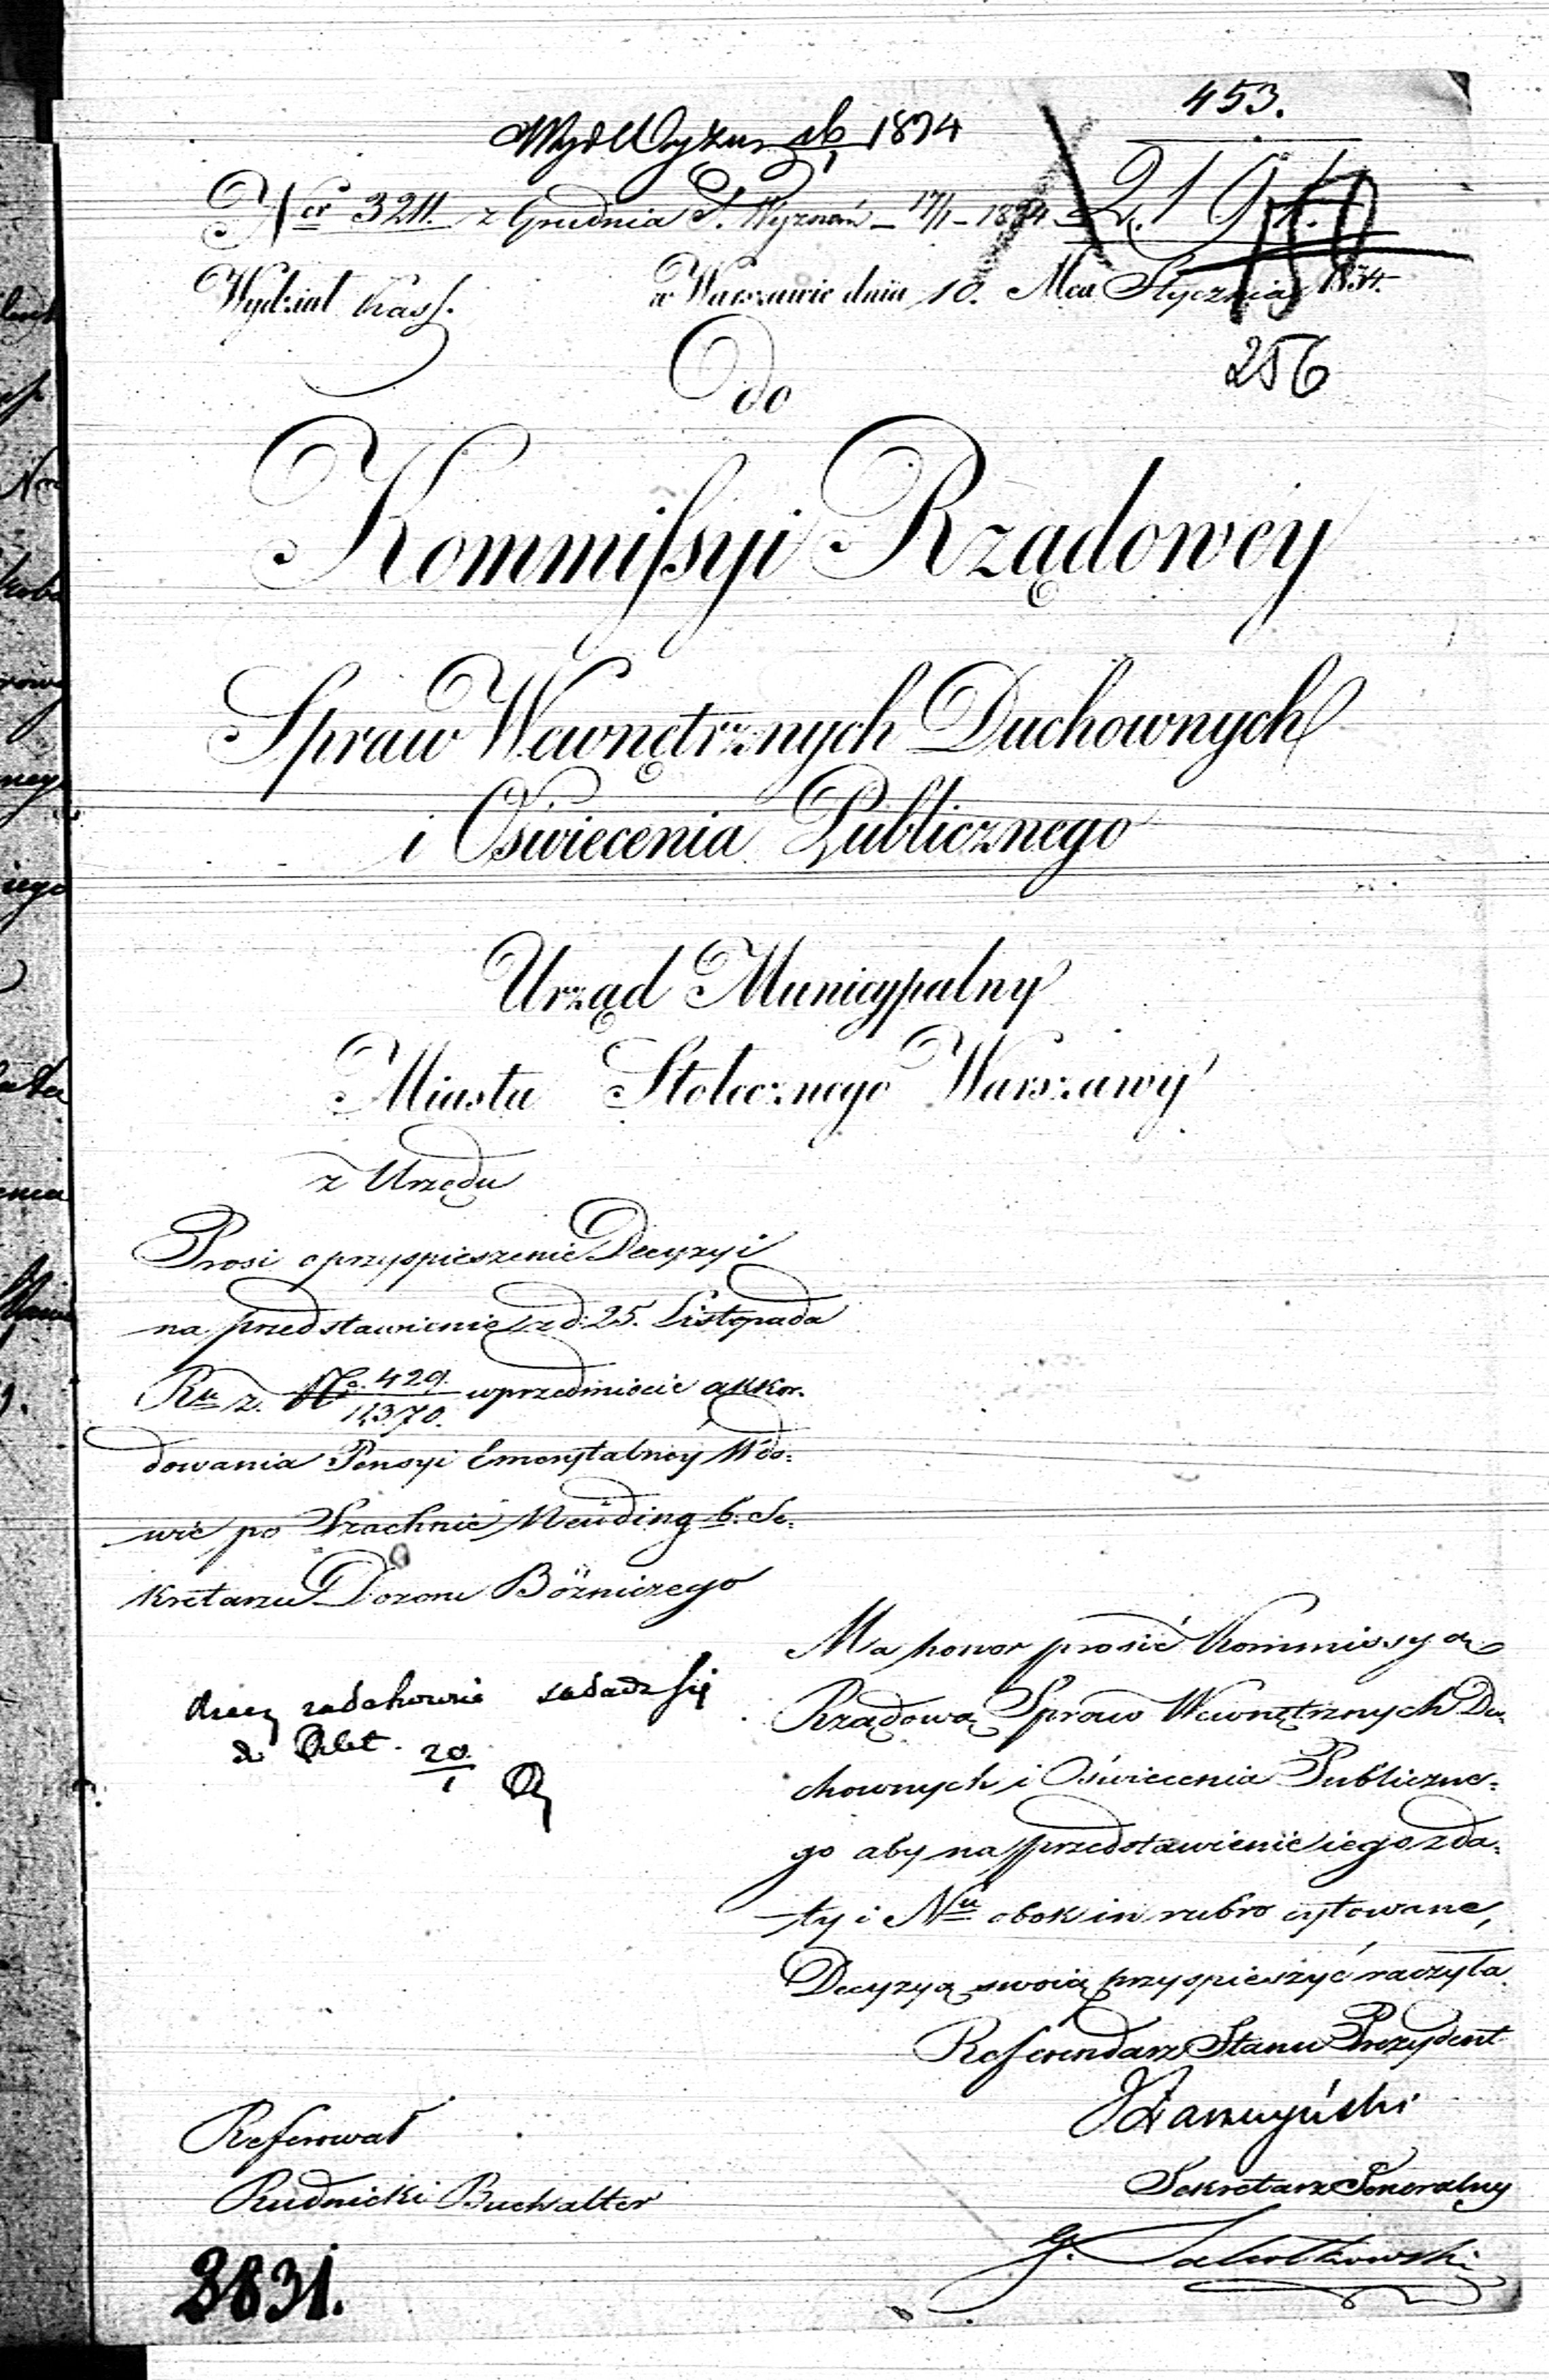 453.
Wydz Wyzn 16/1 1834
Ner 3211. z Grudnia S. Wyznań – 17/1 – 1834 2191.
150
Wydział Kass. w Warszawie dnia 10. Mca Stycznia 1834.
256
do
Kommißyi Rządowéy
Spraw Wewnętrznych Duchownych
i Oświecenia Publicznego
Urząd Municypalny
Miasta Stołecznego Warszawy
z Urzędu
Prosi o przyspieszenie Decyzyi
na przedstawienie z d. 25. Listopada
Ru z. No. 429./14370. w przedmiocie akkor-
dowania Pensyi Emerytalnéy Wdo-
wie po Szachnie Neüding b. Se-
kretarzu Dozoru Bóżniczego
Ma honor prosić Kommissyą
Rządową Spraw Wewnętrznych Du-
chownych i Oświecenia Publiczne-
go aby na przedstawienie iego z da-
ty i Nu obok in rubro cytowane,
Decyzyą swoią przyspieszyć raczyła.
Rzecz
do 20/1
Referendarz Stanu Prezydent
Sekretarz Generalny
Referował
Rudnicki Buchalter
3831.